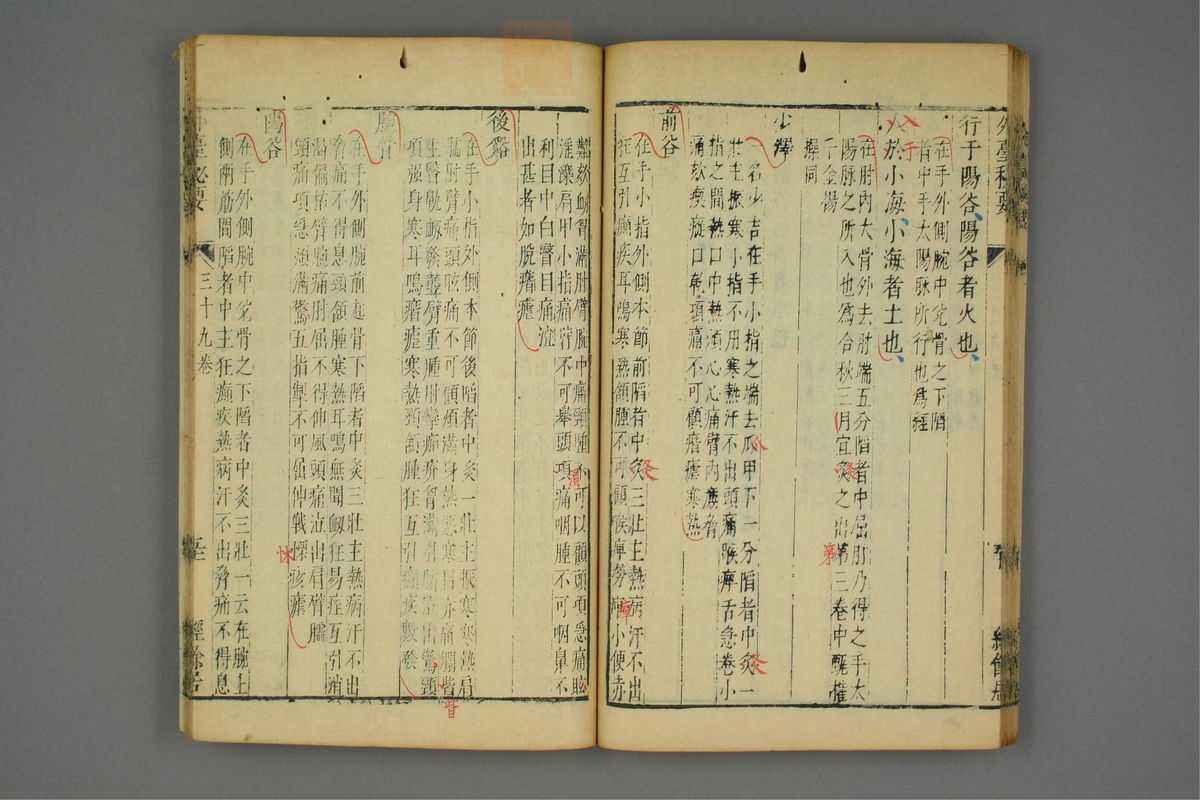 外臺秘要
行于陽谷陽谷者火也
在手外側腕中兌骨之下陷
者中手太陽脉所行也爲經
入於小海小海者土也
在肘內大骨外去肘端五分陷者中屈肘乃得之手太
陽脉之所入也爲合秋三月宜灸之出第三卷中甄權
千金楊
操同
少澤
一名少吉在手小指之端去爪甲下一分陷者中灸一
壯主振寒小指不用寒熱汗不出頭痛喉痺舌急卷小
指之間熱口中熱煩心心痛臂內廉脅
痛欬瘈瘲口乾項痛不可顧痎瘧寒熱
前谷
在手小指外側本節前陷者中灸三壯主熱病汗不出
狂互引癲疾耳鳴寒熱頷腫不可顧喉痺勞瘅小便赤
難欬衄胷滿肘臂腕中痛頸腫不可以顧頭項急痛眩
淫濼肩甲小指痛臂不可舉頭項痛咽腫不可咽鼻不
利目中白瞖目痛泣
出甚者如脫痎瘧
後谿
在手小指外側本節後陷者中灸一壯主振寒寒熱肩
臑肘臂痛頭眩痛不可顧煩滿身熱惡寒目赤痛爛眥
生瞖鼽衄發聾臂重腫肘攣痂疥胷滿引臑泣出驚頸
項强身寒耳鳴痎瘧寒熱頸頷腫狂互引癲疾數發
腕骨
在手外側腕前起骨下陷者中灸三壯主熱病汗不出
脅痛不得息頸頷腫寒熱耳鳴無聞衄狂易痓互引消
渴偏枯臂腕痛肘屈不得伸風頭痛泣出肩臂臑
頸痛項急煩滿驚五指掣不可屈伸戰慄痎瘧
陽谷
在手外側腕中兌骨之下陷者中灸三壯一云在腕上
側兩筋間陷者中主狂癲疾熱病汗不出脅痛不得息
外臺秘要
三十九卷
經餘居